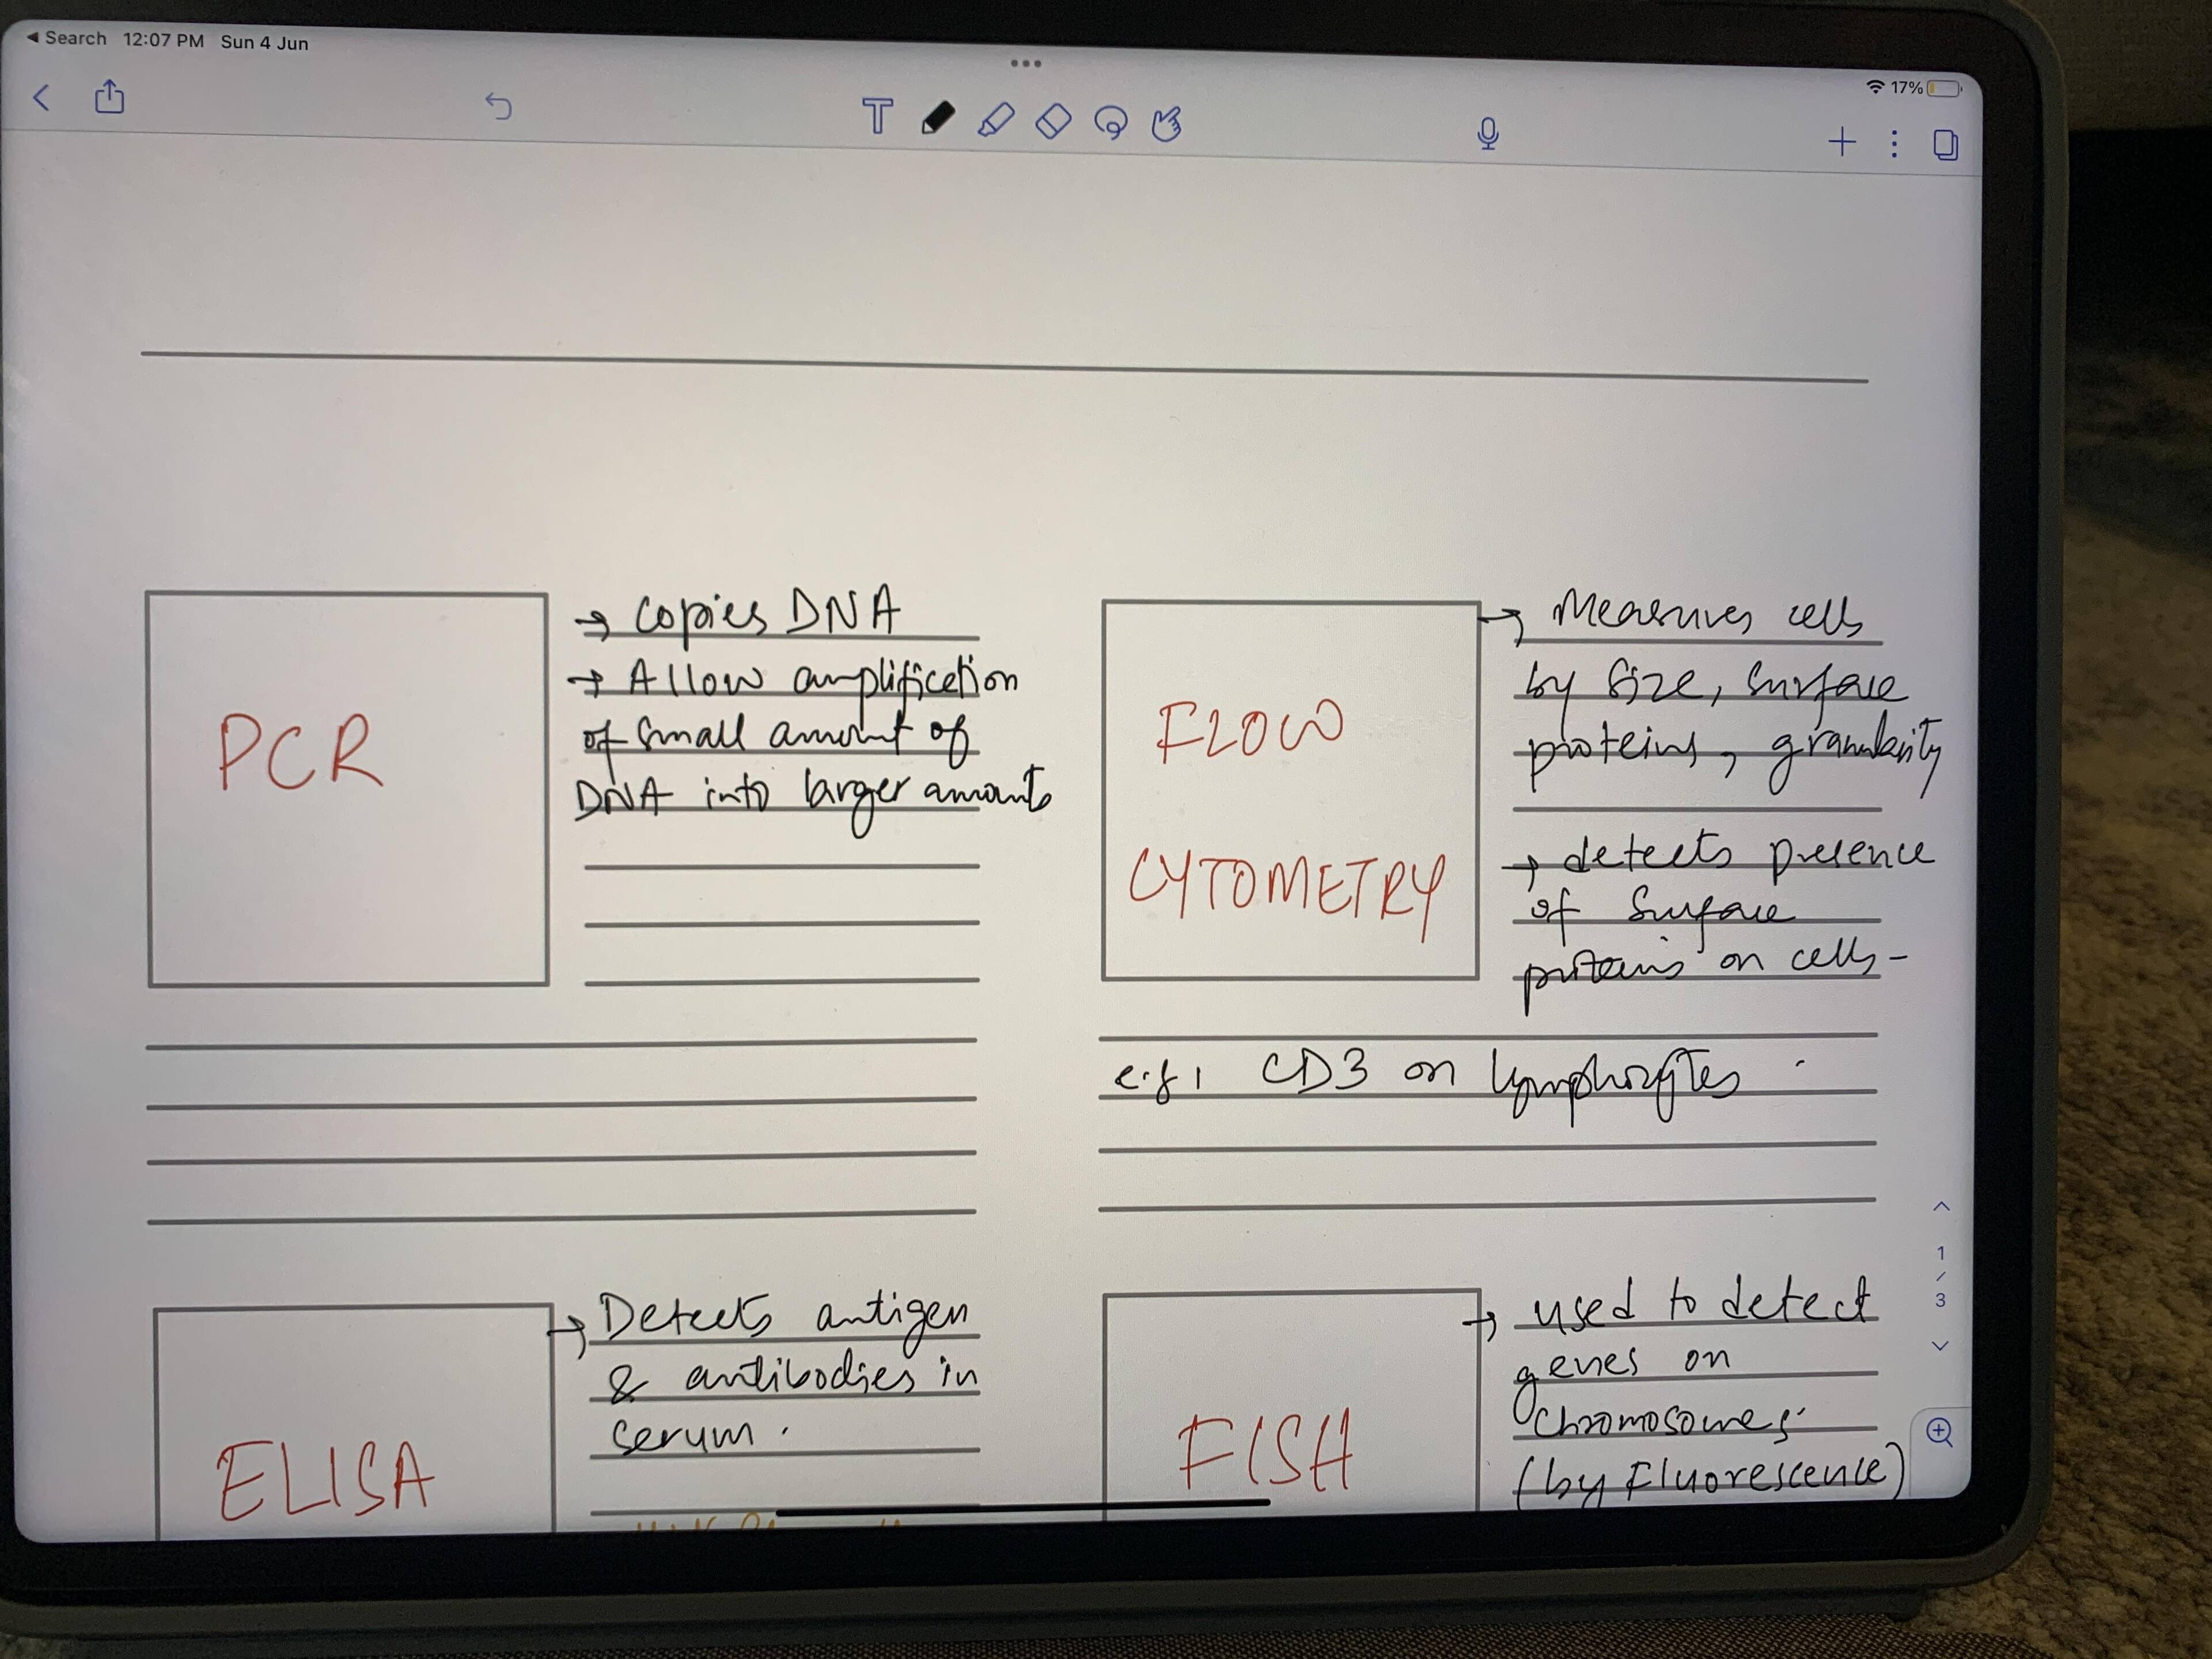 Search 12:07 PM Sun 4 Jun
17%
PCR
→ Copies DNA
→ Allow amplification
of small amount of
DNA into larger amounts
FLOW
CYTOMETRY
→ Measures cells
by size, surface
proteins, granularity
→ detects presence
of surface
proteins on cells-
e.g, CD3 on lymphocytes.
ELISA
→ Detects antigen
& antibodies in
serum.
FISH
→ used to detect
genes on
chromosomes.
(by Fluorescence)
1
/
3